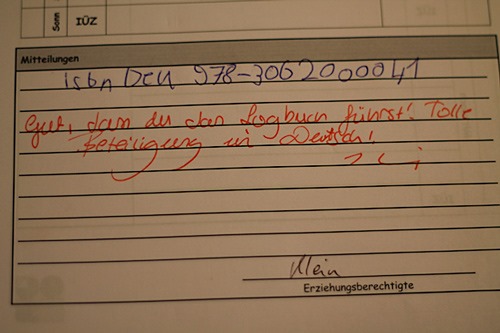 Sonn
IÜZ
Mitteilungen
isbn Deu 978-3062000041
Gut, dass du das Logbuch führst! Tolle
Beteiligung in Deutsch!
Klein
Erziehungsberechtigte